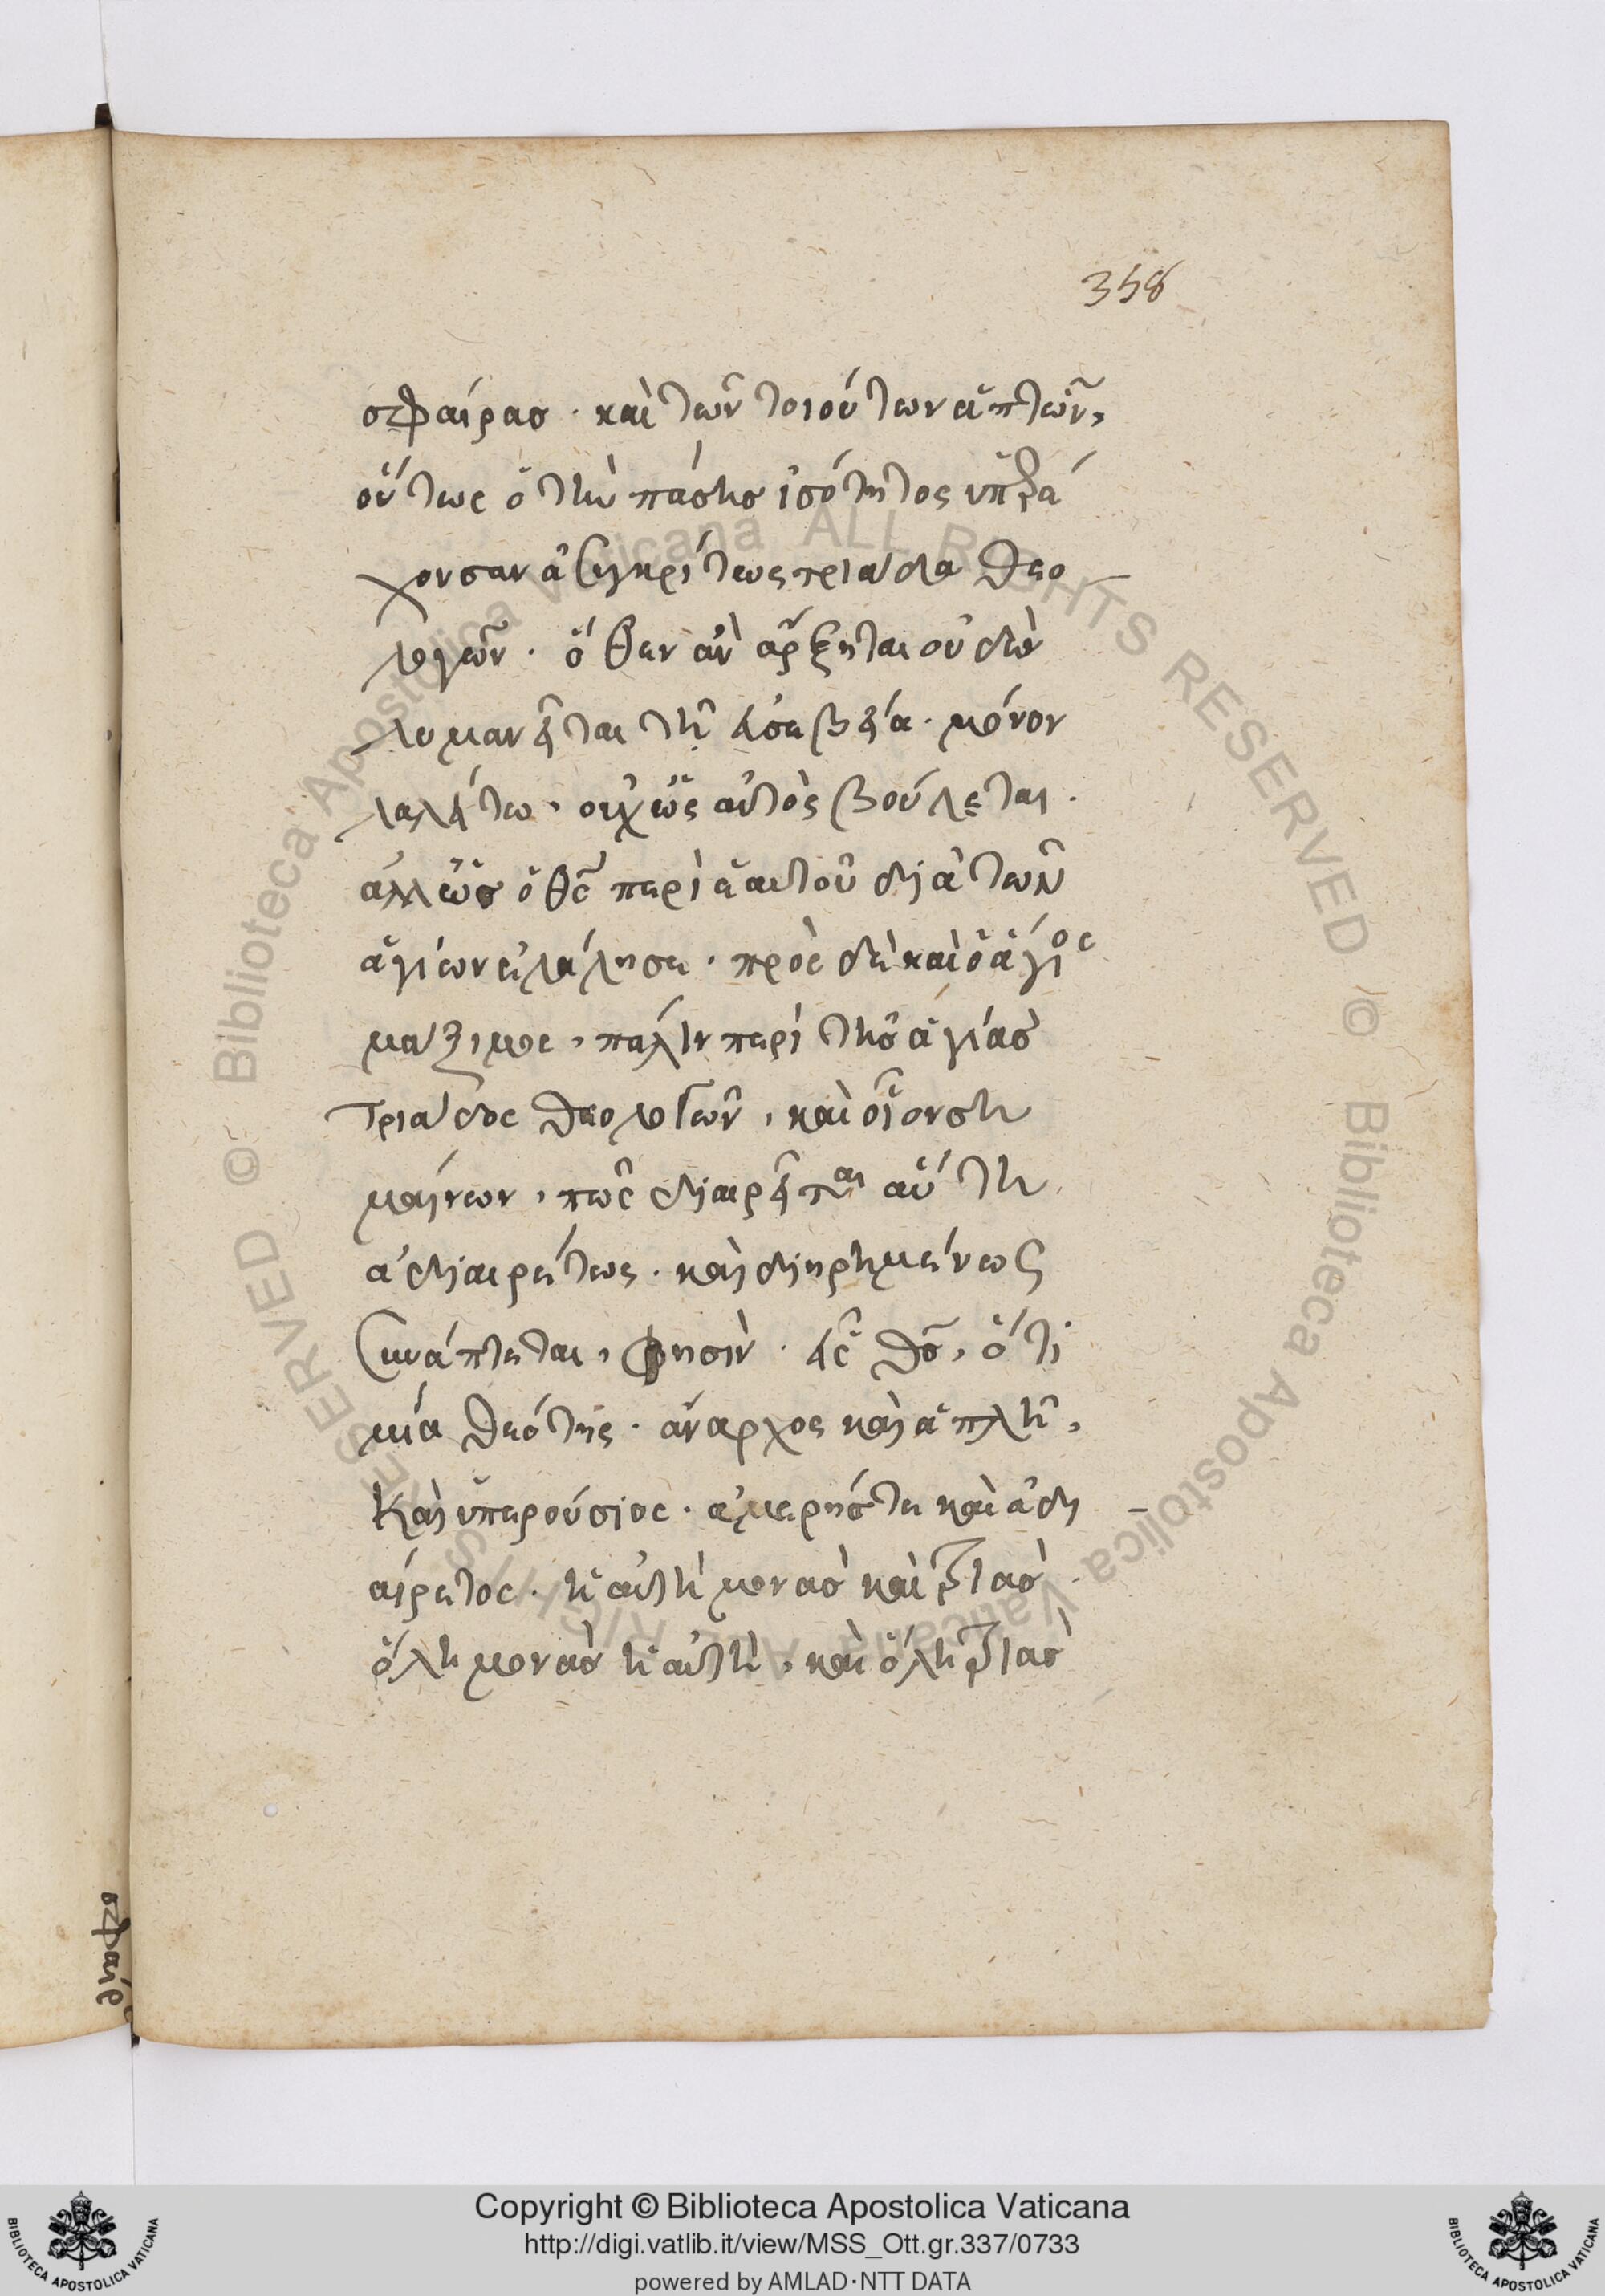 358
σφαίρας · καὶ τῶν τοιούτων ἁπτῶν,
οὕτως ὁ τὴν πάσης ἰσότητος ὑπερά
χουσαν ἀσυγκρίτως τριάδα θεο
λογῶν · ὅθεν ἂν ἄρξηται οὐδὲν
λυμανεῖται τῇ εὐσεβείᾳ · μόνον
λαλείτω, οὐχ ὡς αὐτὸς βούλεται ·
ἀλλ' ὡς ὁ θς περὶ ἑαυτοῦ διὰ τῶν
ἁγίων ἐλάλησε · πρὸς δὲ καὶ ὁ ἅγιος
μάξιμος, πάλιν περὶ τῆς ἁγίας
τριάδος θεολογῶν, καὶ οἷον ση
μαίνων, πῶς διαιρεῖται αὕτη
ἀδιαιρέτως · καὶ διῃρημένως
συνάπτεται, φησὶν · εἷς θς, ὅτι
μία θεότης · ἄναρχος καὶ ἁπλῆ,
καὶ ὑπερούσιος · ἀμερής τε καὶ ἀδι
αίρετος · ἡ αὐτὴ μονὰς καὶ τριάς ·
ὅλη μονὰς ἡ αὐτὴ, καὶ ὅλη τριὰς
σφαίρ
Copyright © Biblioteca Apostolica Vaticana
http://digi.vatlib.it/view/MSS_Ott.gr.337/0733
powered by AMLAD·NTT DATA
BIBLIOTECA APOSTOLICA VATICANA
BIBLIOTECA APOSTOLICA VATICANA
© Biblioteca Apostolica Vaticana ALL RIGHTS RESERVED
© Biblioteca Apostolica Vaticana ALL RIGHTS RESERVED